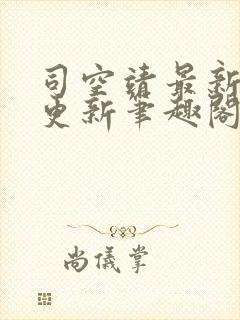 司空靖最新
更新笔趣阁
尚仪掌